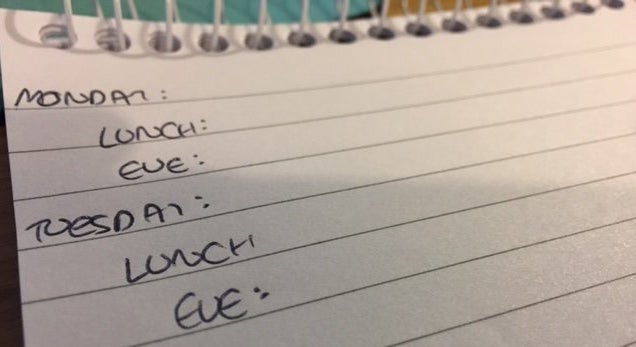 MONDAY:
LUNCH:
EVE:
TUESDAY:
LUNCH
EVE: